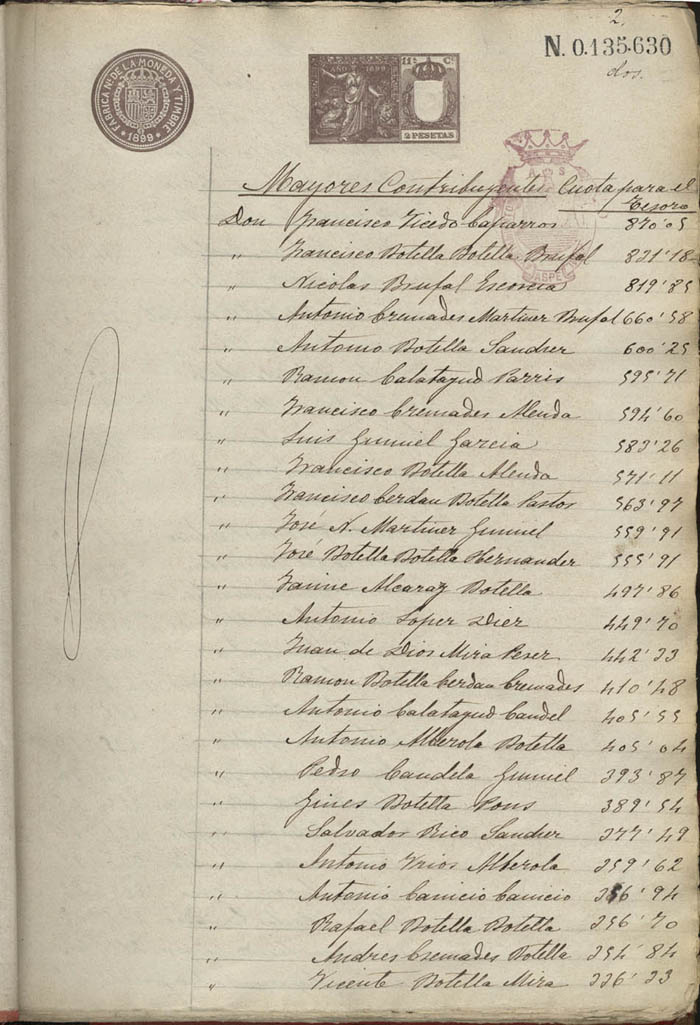 2
N. 0.135.630
dos.
FÁBRICA NAL. DE LA MONEDA Y TIMBRE
1899
AÑO 1899
11ª Cª
2 PESETAS
A S
ASPE
Mayores Contribuyentes Cuota para el
Tesoro
Don Francisco Vicedo Caparros 870'05
" Francisco Botella Botella Brufal 821'18
" Nicolas Brufal Escorcia 819'85
" Antonio Cremades Martinez Brufal 660'58
" Antonio Botella Sandrer 600'25
" Ramon Calatayud Parris 595'71
" Francisco Cremades Alenda 594'60
" Luis Gumiel Garcia 583'26
" Francisco Botella Alenda 571'11
" Francisco Cerdan Botella Pastor 563'97
" José A. Martinez Gumiel 559'91
" José Botella Botella Hernander 555'91
" Jaime Alcaraz Botella 497'86
" Antonio Soper Dier 449'70
" Juan de Dios Mira Perer 442'33
" Ramon Botella Cerdan Cremades 410'48
" Antonio Calatayud Candel 405'55
" Antonio Alberola Botella 405'04
" Pedro Candela Gumiel 393'87
" Gines Botella Pons 389'54
" Salvador Rico Sandrer 377'49
" Antonio Urios Alberola 359'62
" Antonio Canicio Canicio 356'94
" Rafael Botella Botella 356'70
" Andres Cremades Botella 354'84
" Vicente Botella Mira 336'33